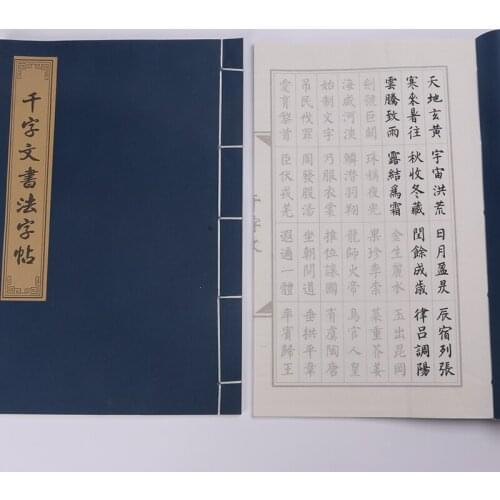 千字文書法字帖
天地玄黃 宇宙洪荒 日月盈昃 辰宿列張
寒來暑往 秋收冬藏 閏餘成歲 律呂調陽
雲騰致雨 露結爲霜 金生麗水 玉出昆岡
劍號巨闕 珠稱夜光 果珍李柰 菜重芥姜
海咸河淡 鱗潛羽翔 龍師火帝 鳥官人皇
始制文字 乃服衣裳 推位讓國 有虞陶唐
吊民伐罪 周發殷湯 坐朝問道 垂拱平章
愛育黎首 臣伏戎羌 遐邇一體 率賓歸王
千字文